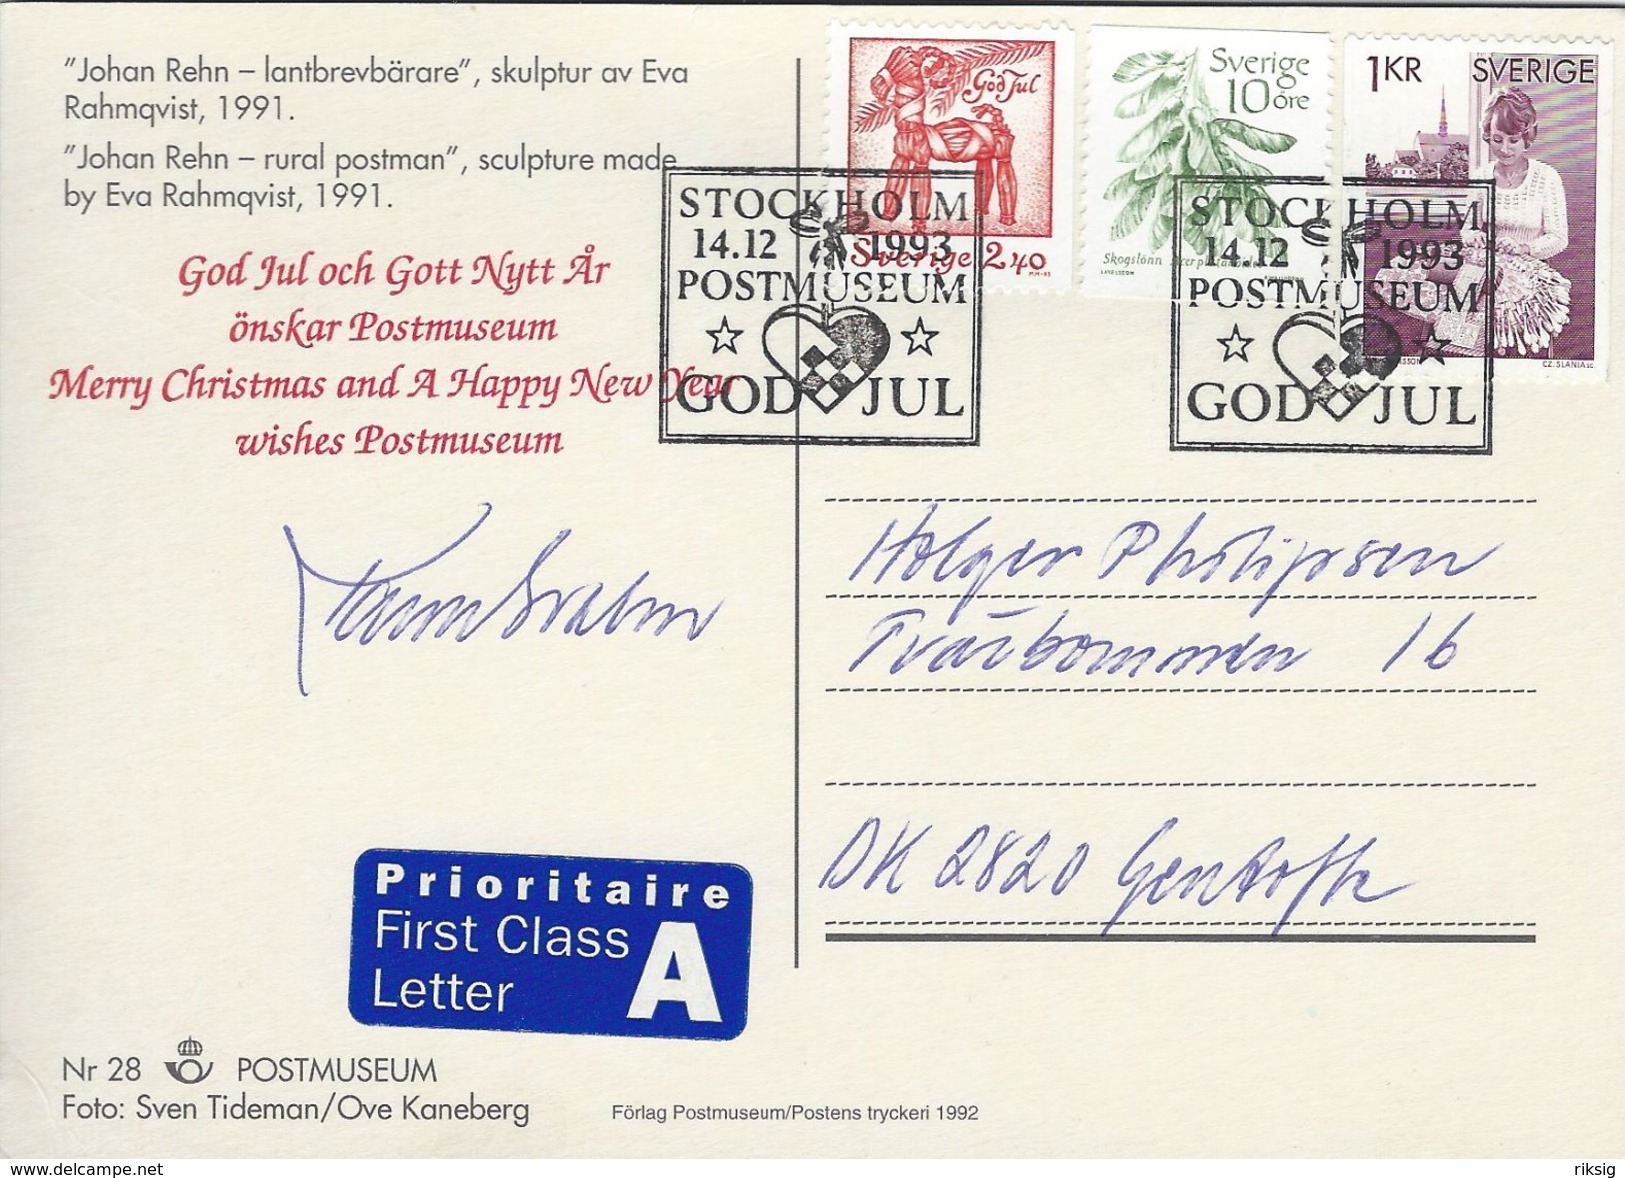 "Johan Rehn – lantbrevbärare", skulptur av Eva
Rahmqvist, 1991.
"Johan Rehn – rural postman", sculpture made
by Eva Rahmqvist, 1991.
God Jul och Gott Nytt År
önskar Postmuseum
Merry Christmas and A Happy New Year
wishes Postmuseum
God Jul
Sverige 2 40
Sverige
10 öre
Skogslönn
1 KR SVERIGE
CZ. SLANIA sc.
STOCKHOLM
14.12 1993
POSTMUSEUM
GOD JUL
STOCKHOLM
14.12 1993
POSTMUSEUM
GOD JUL
Holger Philipsen
Tværbommen 16
DK 2820 Gentofte
Prioritaire
First Class
Letter
A
Nr 28 POSTMUSEUM
Foto: Sven Tideman/Ove Kaneberg
Förlag Postmuseum/Postens tryckeri 1992
www.delcampe.net
riksig